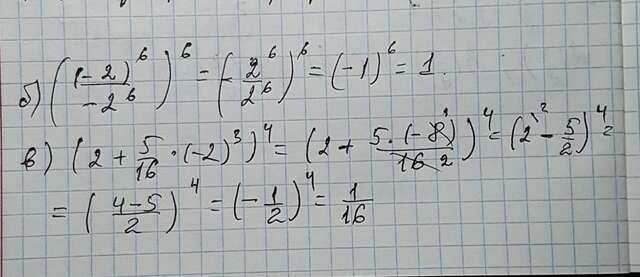 б) ((-2)^6 / -2^6)^6 = (-2^6/2^6)^6 = (-1)^6 = 1.
в) (2 + 5/16 · (-2)^3)^4 = (2 + 5·(-8^1)/16 2)^4 = (2^2 - 5/2)^4 =
= (4-5/2)^4 = (-1/2)^4 = 1/16